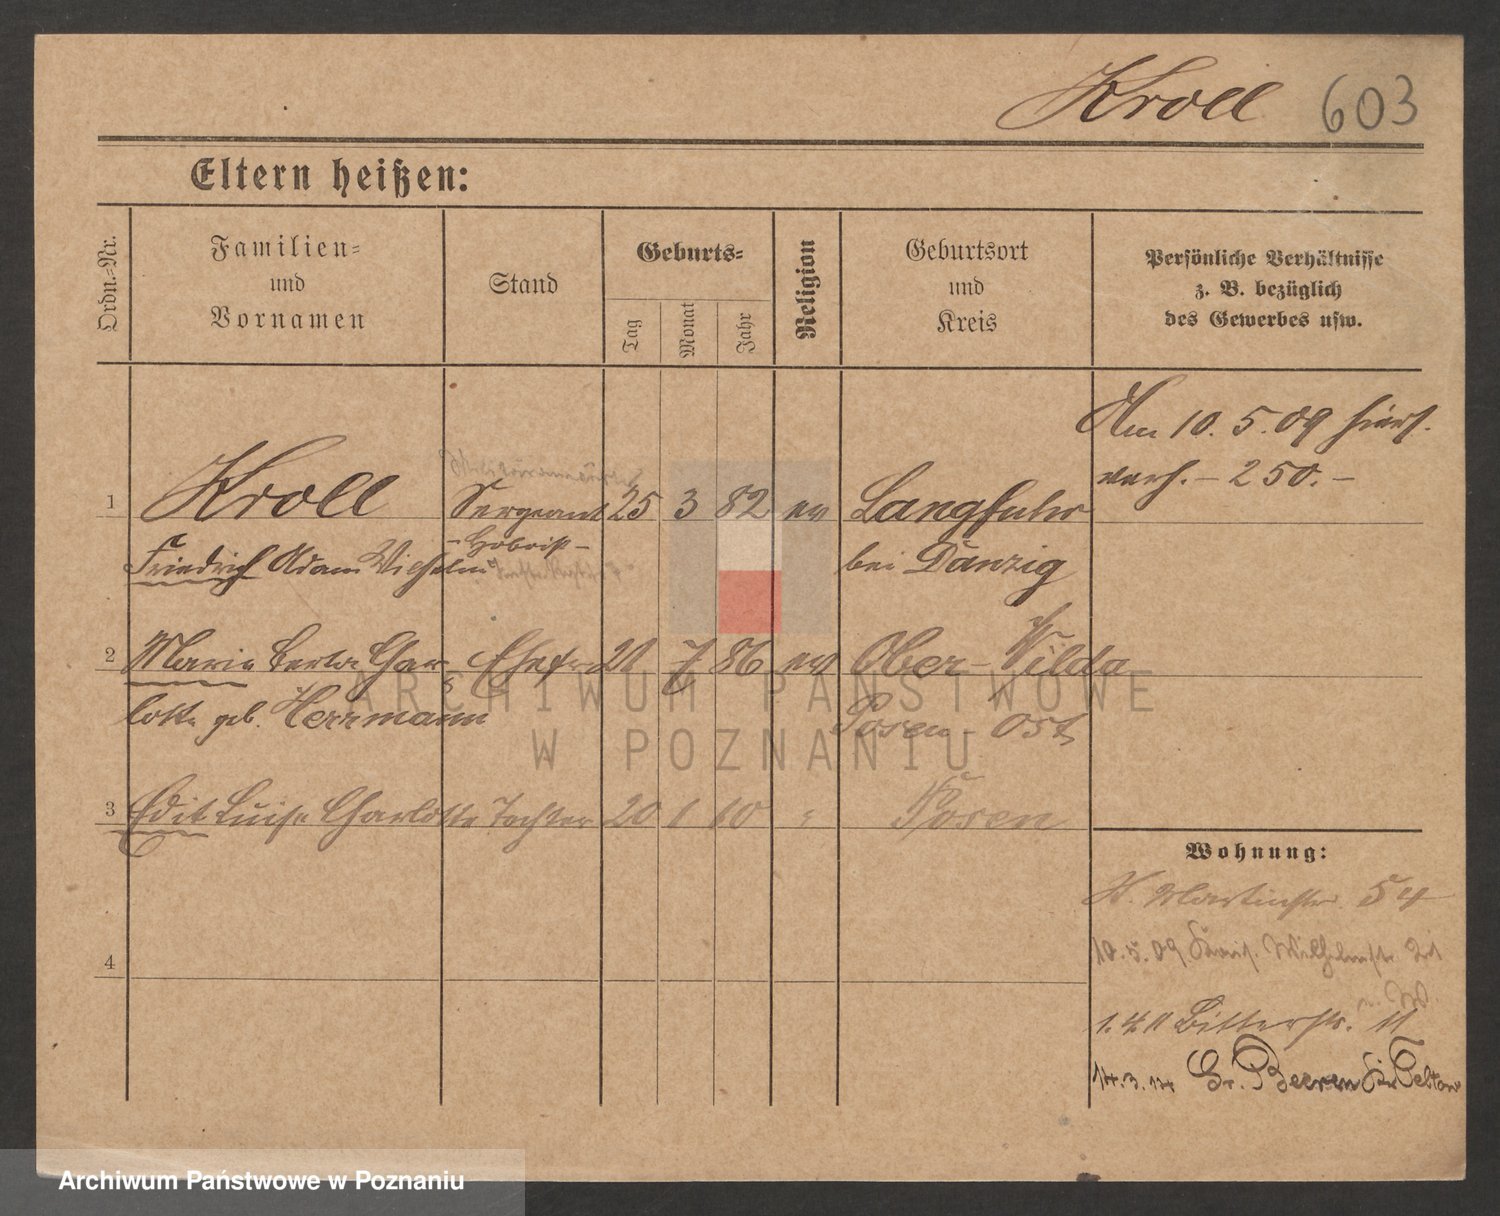 Kroll 603
Eltern heißen:
Ordn.-Nr. Familien- und Vornamen Stand Geburts- Tag Monat Jahr Religion Geburtsort und Kreis Persönliche Verhältnisse z. B. bezüglich des Gewerbes usw.
Am 10. 5. 09 hier
verh. – 250. –
1 Kroll Sergeant 25 3 82 ev Langfuhr
Friedrich Adam Wilhelm – Hoboist – bei Danzig
2 Marie Berta Char- Ehefr 21 7 86 ev Ober-Wilda
lotte geb. Herrmann Posen-Ost
3 Edit Luise Charlotte Tochter 20 1 10 " Posen
Wohnung:
St. Martinstr. 54
10.5.09 Wilhelmstr.
4
1.4.11 Bitterstr. 11
14.3.14 Gr. Beeren Teltow
ARCHIWUM PAŃSTWOWE
W POZNANIU
Archiwum Państwowe w Poznaniu